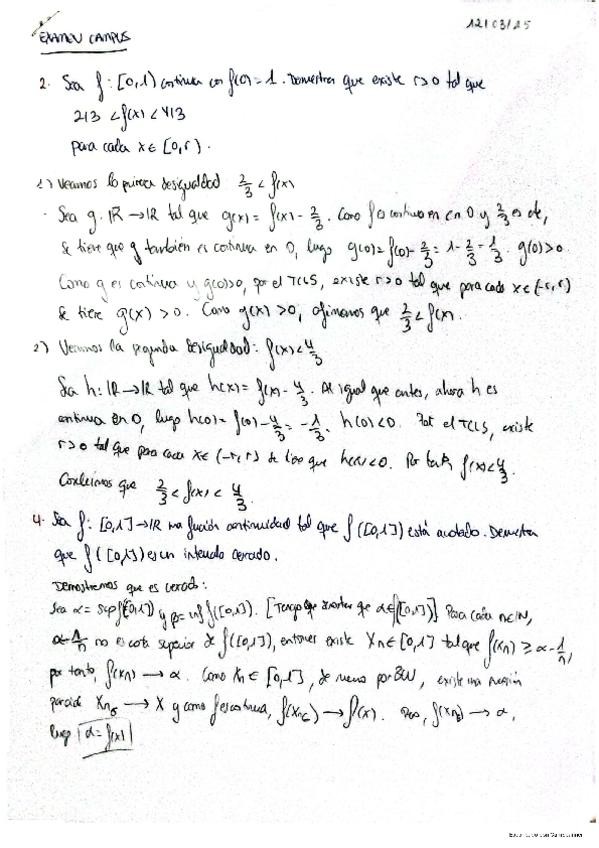 12/03/25
EXAMEN CAMPUS
2. Sea f: [0,1) continua con f(0)=1. Demostrar que existe r>0 tal que
2/3 < f(x) < 4/3
para cada x ∈ [0,r).
1) Veamos la primera desigualdad: 2/3 < f(x)
· Sea g: ℝ → ℝ tal que g(x) = f(x) - 2/3. Como f es continua en 0 y 2/3 es cte,
se tiene que g también es continua en 0, luego g(0) = f(0) - 2/3 = 1 - 2/3 = 1/3. g(0)>0.
Como g es continua y g(0)>0, por el TCLS, existe r>0 tal que para cada x ∈ (-r, r)
se tiene g(x) > 0. Como g(x) > 0, afirmamos que 2/3 < f(x).
2) Veamos la segunda desigualdad: f(x) < 4/3
Sea h: ℝ → ℝ tal que h(x) = f(x) - 4/3. Al igual que antes, ahora h es
continua en 0, luego h(0) = f(0) - 4/3 = -1/3. h(0) < 0. Por el TCLS, existe
r>0 tal que para cada x ∈ (-r, r) se tiene que h(x) < 0. Por tanto, f(x) < 4/3.
Concluimos que 2/3 < f(x) < 4/3.
4. Sea f: [0,1] → ℝ una función continuidad tal que f([0,1]) está acotado. Demostrar
que f([0,1]) es un intervalo cerrado.
Demostremos que es cerrado:
Sea α = sup f([0,1]) y β = inf f([0,1]). [Tengo que mostrar que α ∈ f([0,1])] Para cada n ∈ ℕ,
α - 1/n no es cota superior de f([0,1]), entonces existe Xn ∈ [0,1] tal que f(Xn) ≥ α - 1/n,
por tanto, f(Xn) → α. Como Xn ∈ [0,1], de nuevo por BW, existe una sucesión
parcial → X y como f es continua, → f(x). Pero, → α,
luego α = f(x)